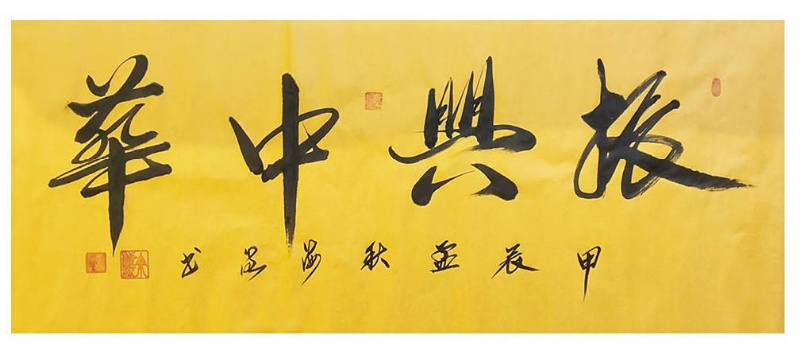 振興中華
甲辰孟秋海荣书